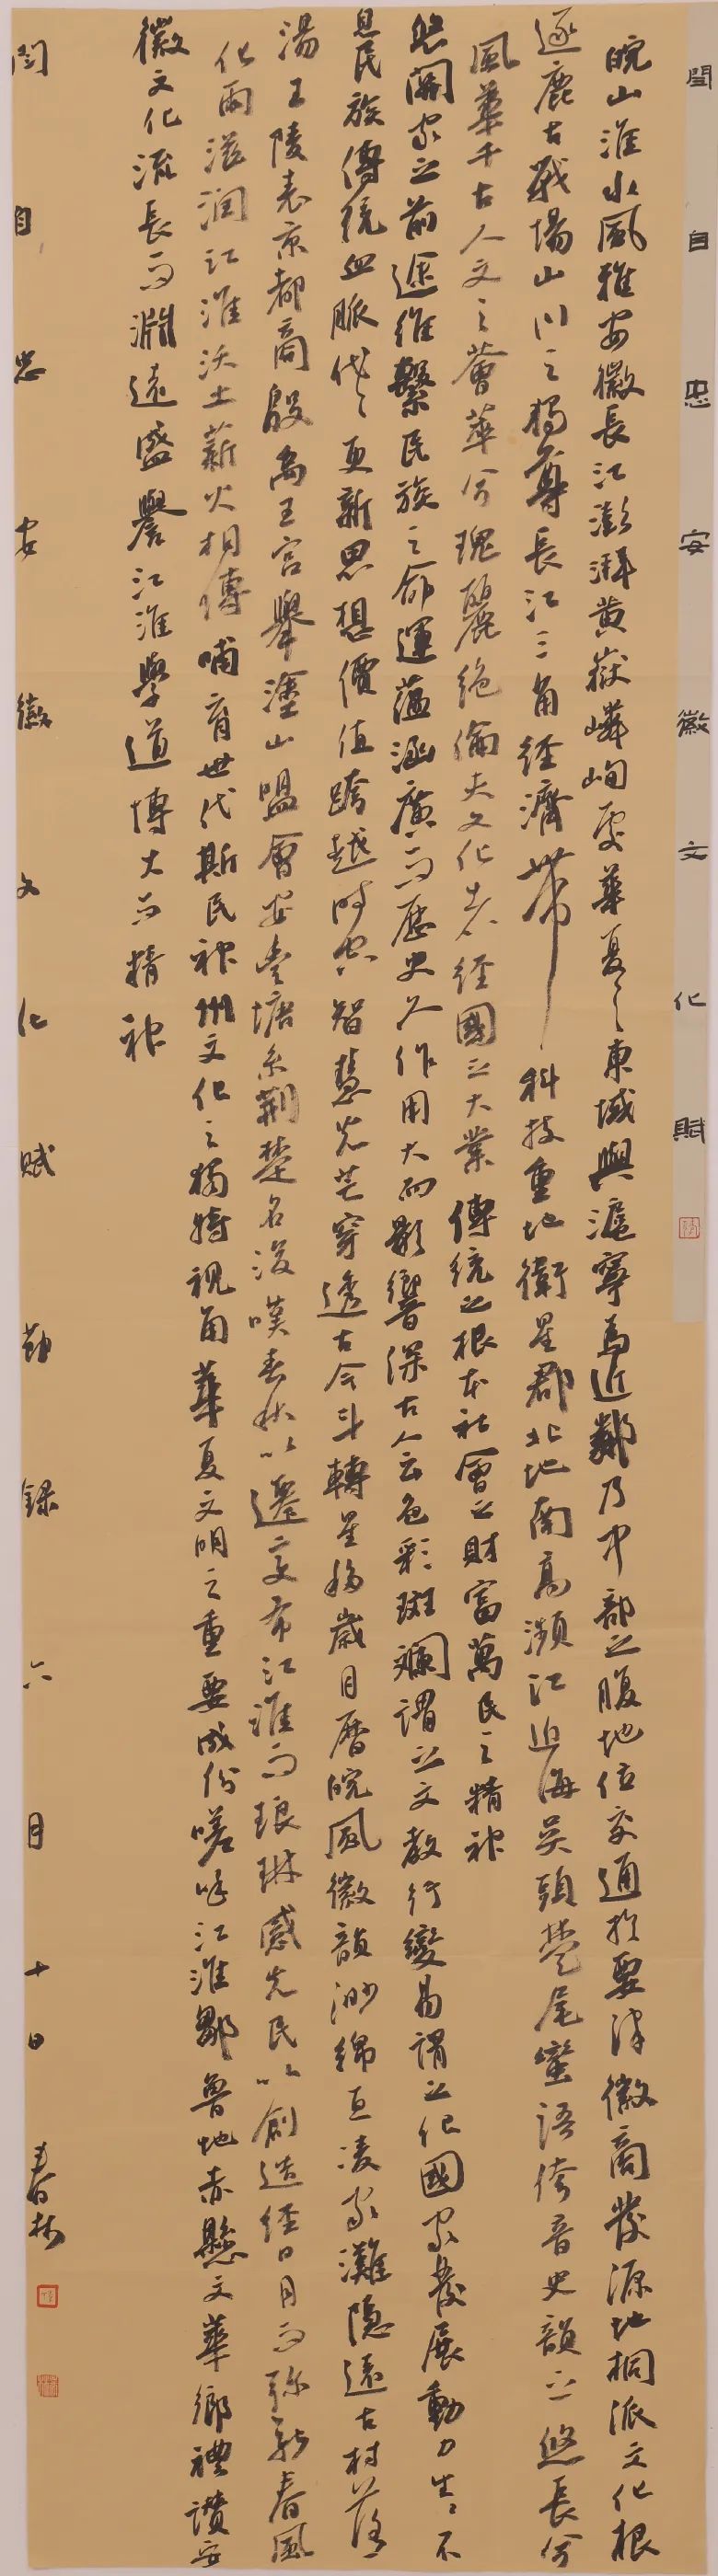 閆自忠安徽文化賦
皖山淮水風雅安徽長江澎湃黄嶽嶙峋處華夏之東域與滬寧為近鄰乃中部之腹地位交通扼要津徽商發源地桐派文化根
逐鹿古戰場山川之獨尊長江三角經濟帶科技重地衛星郡北地南高瀕江近海吳頭楚尾蠻語侉音史韻之悠長兮
風華千古人文之薈萃兮瑰麗絶倫夫文化者經國之大業傳統之根本社會之財富萬民之精神
關家之前途維繫民族之命運蘊涵廣而歷史久作用大而影響深古人云色彩斑斕謂之文教行變易謂之化國家發展動力生生不
息民族傳統血脈代代更新思想價值跨越時空智慧光芒穿透古今斗轉星移歲月曆皖風徽韻渺綿亘凌家灘隱遠古村落
湯王陵表京都商殷禹王宮舉塗山盟會安豐塘系荆楚名浚嘆春秋以遷变布江淮而琅琳感先民以創造經日月而弥新春風
化雨滋潤江淮沃土薪火相傳哺育世代斯民神州文化之獨特視角華夏文明之重要成份嗟呼江淮鄒魯地赤縣文華鄉禮讚安
徽文化流長而淵遠盛譽江淮學道博大而精神
閆自忠安徽文化賦勐録六月十日春林